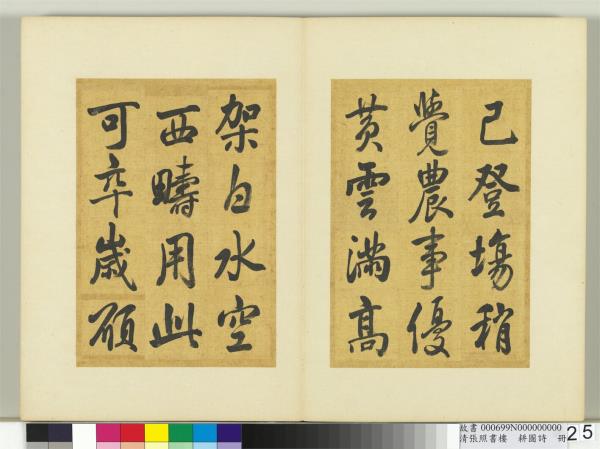 已登塲稍
覺農事優
黃雲滿高
架白水空
西疇用此
可卒歲願
故書 000699N000000000
清張照書樓 耕圖詩 冊
25